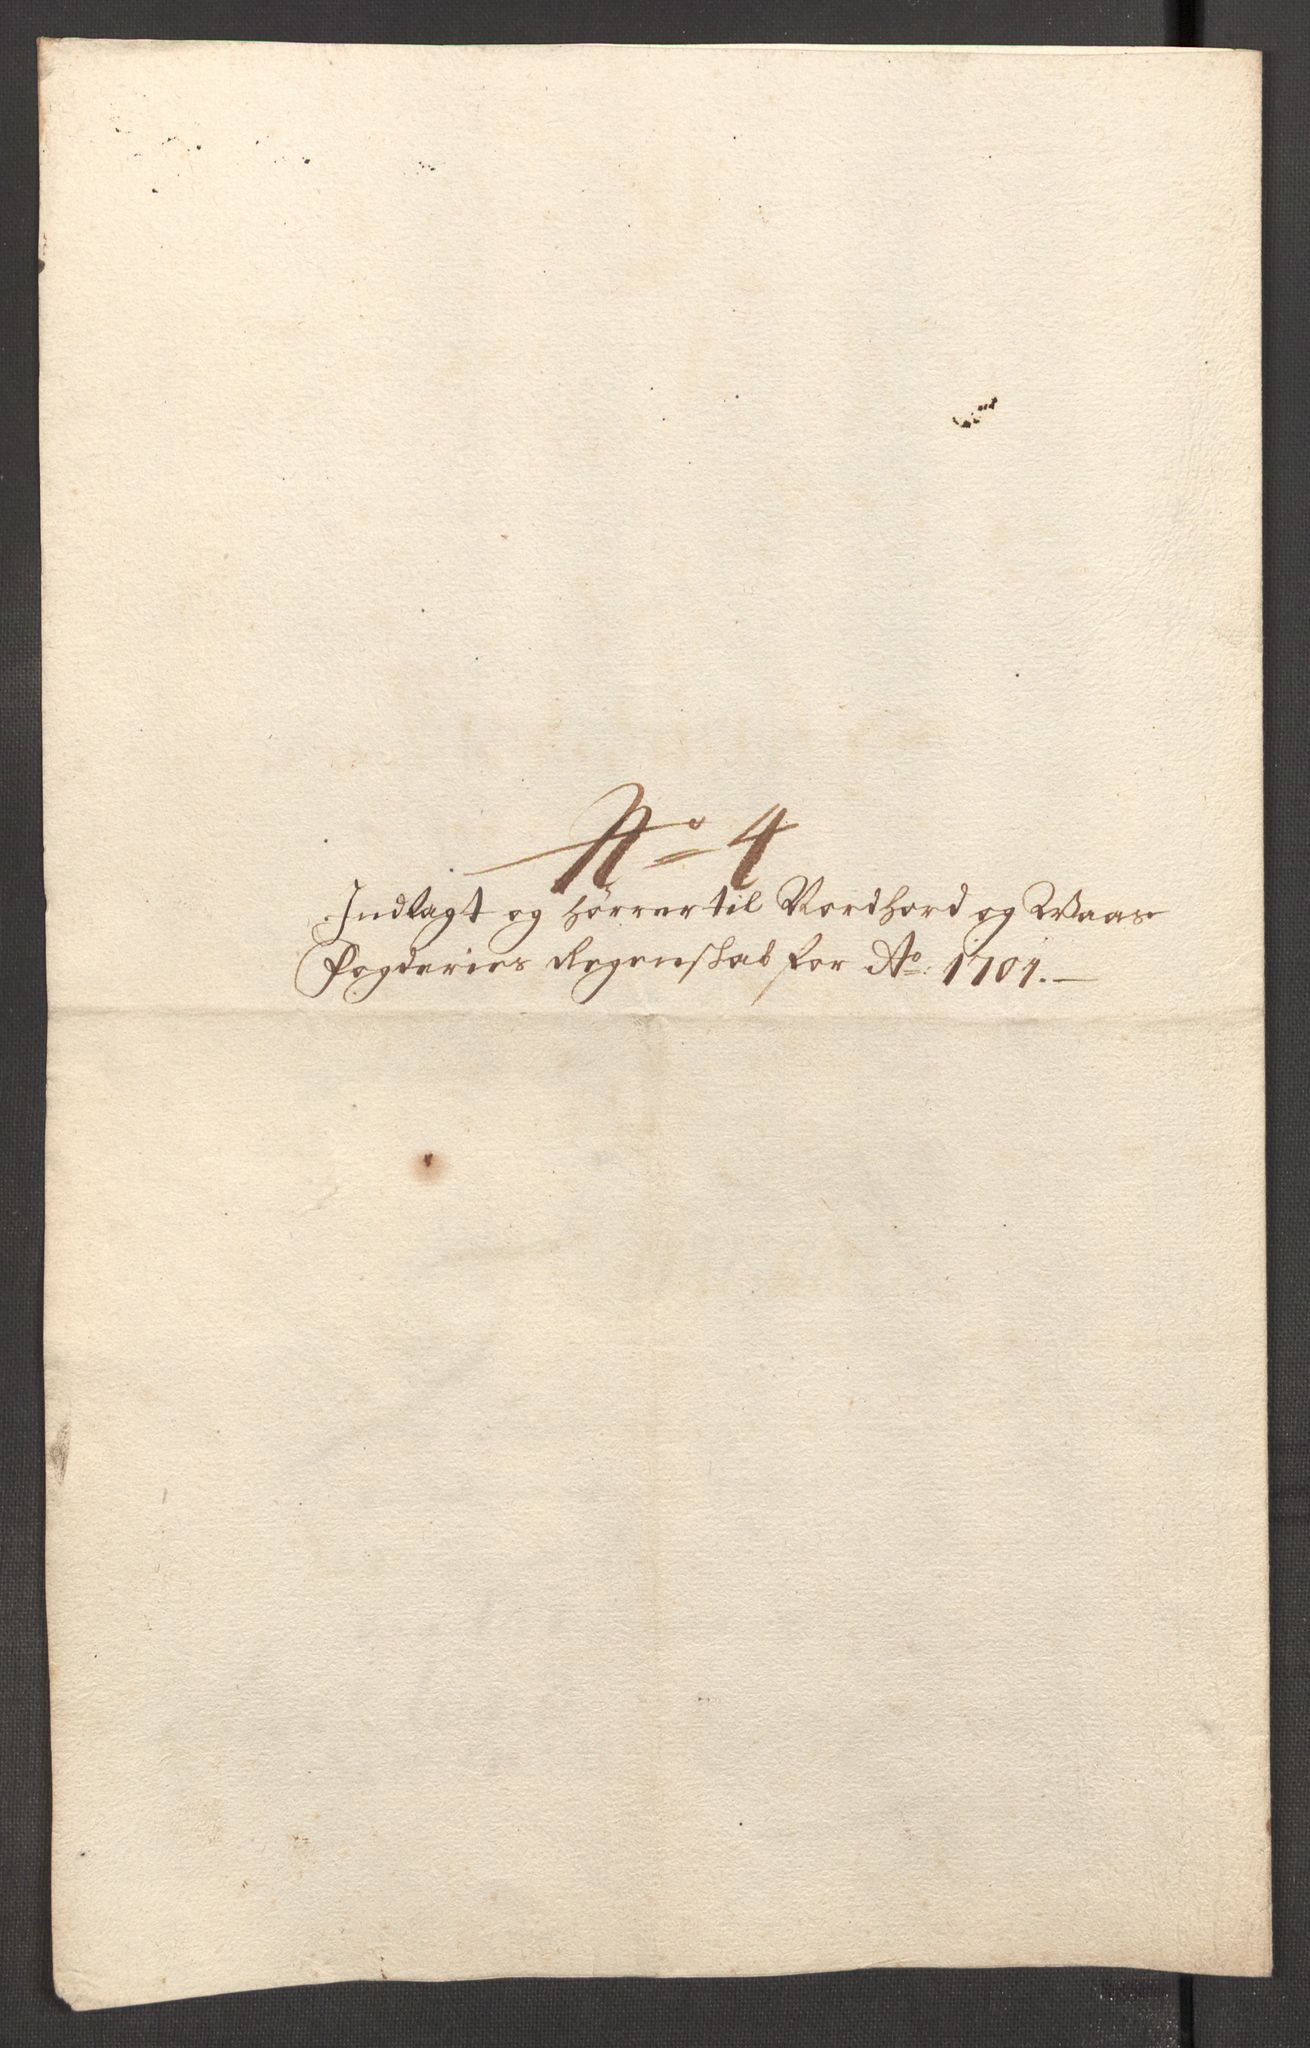 No 4
Indlagt og hørrer til Nordhord og Waas
fogderies Regenskab for Ao: 1701.